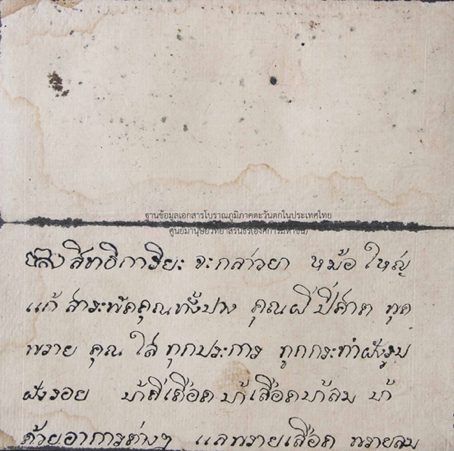 ฐานข้อมูลเอกสารโบราณภูมิภาคตะวันตกในประเทศไทย
ศูนย์มานุษยวิทยาสิรินธร(องค์การมหาชน)
สิทธิการิยะ จะกล่าวยา หม้อ ใหญ่
แก้ สาระพัดคุณทั้งปวง คุณผี ปีศาต พุด
พราย คุณ ใส่ ทุกประการ ถูกกระทำฝังรูบ
ฝังรอย บ้าดีเดือด บ้าเลือดบ้าลม บ้า
ด้วยอาการต่างๆ แลพรายเลือด พรายลม